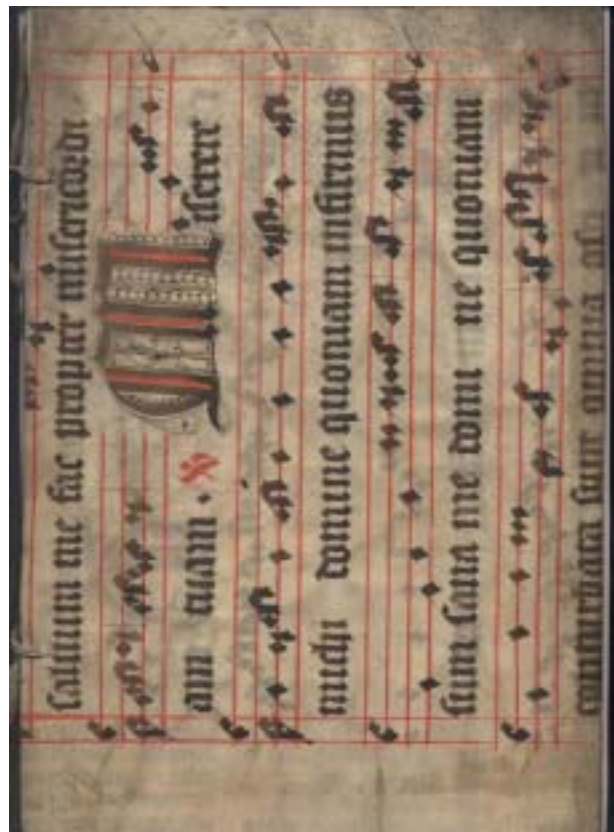 saluum me fac propter misericordi
am tuam . ℣ Miserere
michi domine quoniam infirmus
sum sana me domi ne quoniam
conturbata sunt omnia os